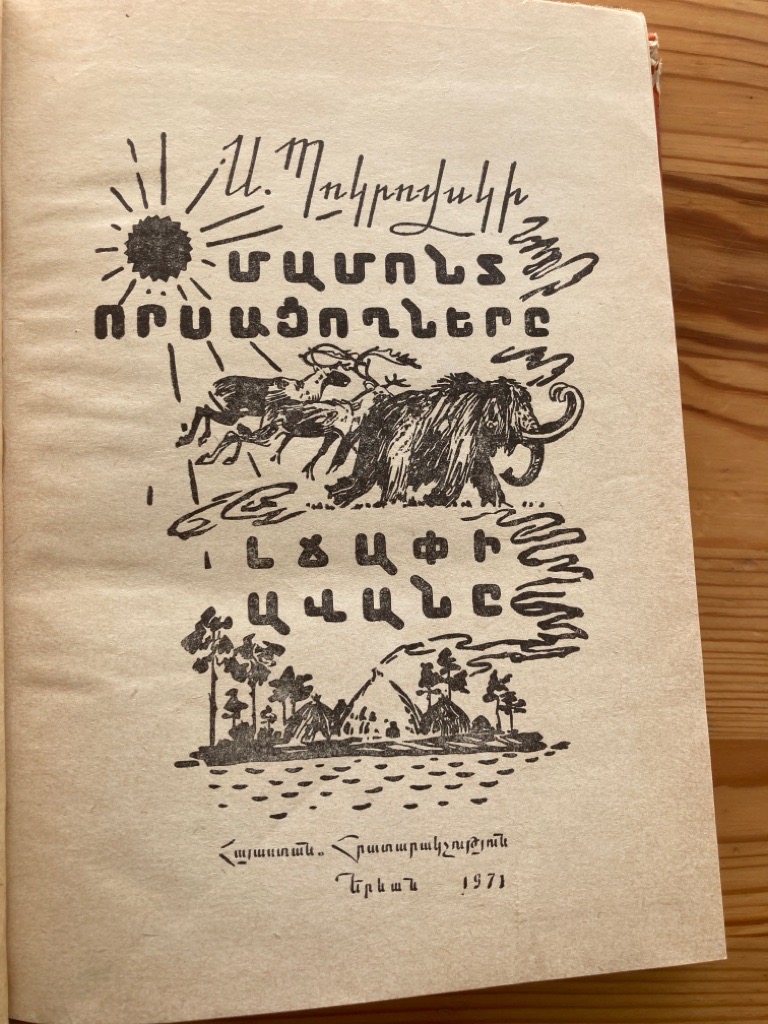 Ս. Պոկրովսկի
ՄԱՄՈՆՏ
ՈՐՍԱՑՈՂՆԵՐԸ
ԼՃԱՓԻ
ԱՎԱՆԸ
Հայաստան» Հրատարակչություն
Երևան 1971